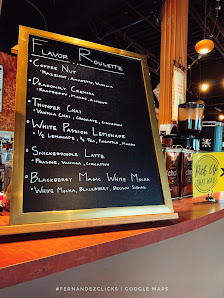 Flavor Roulette
Coffee Nut
• Hazelnut, Amaretto, Vanilla
Dragonfly Cremosa
• Raspberry, Mango, Almond
Thunder Chai
• Vanilla Chai, Chocolate, Cinnamon
White Passion Lemonade
• ½ Lemonade, ½ Tea, Pineapple, Mango
Snickerdoodle Latte
• Praline, Vanilla, Cinnamon
Blackberry Magic White Mocha
• White Mocha, Blackberry, Brown Sugar
Pick Up
#FERNANDEZCLICKS | GOOGLE MAPS